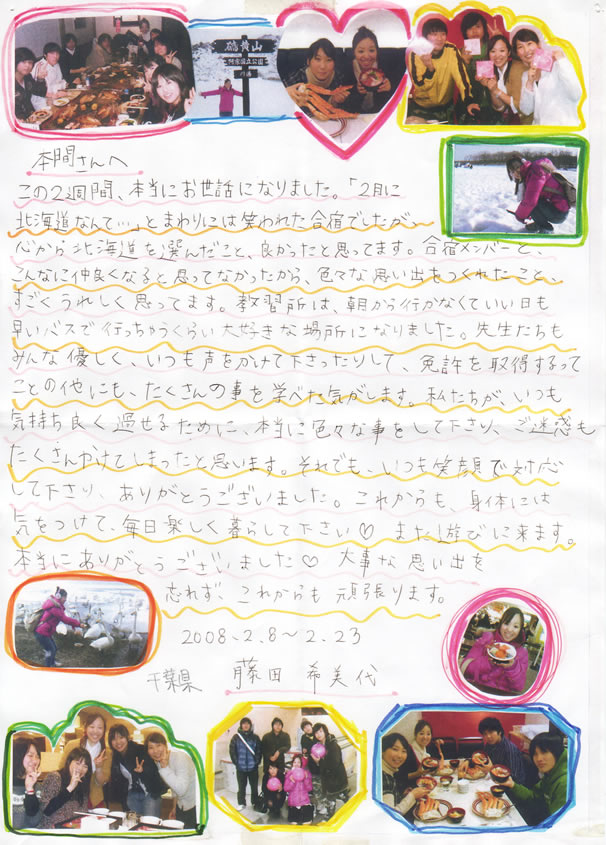 硫黄山
阿寒国立公園
川湯
本間さんへ
この2週間、本当にお世話になりました。「2月に
北海道なんて…」とまわりには笑われた合宿でしたが、
心から北海道を選んだこと、良かったと思ってます。合宿メンバーと、
こんなに仲良くなると思ってなかったから、色々な思い出をつくれたこと、
すごくうれしく思ってます。教習所は、朝から行かなくていい日も
早いバスで行っちゃうくらい大好きな場所になりました。先生たちも
みんな優しく、いつも声をかけて下さったりして、免許を取得するって
ことの他にも、たくさんの事を学べた気がします。私たちが、いつも
気持ち良く過せるために、本当に色々な事をして下さり、ご迷惑も
たくさんかけてしまったと思います。それでも、いつも笑顔で対応
して下さり、ありがとうございました。これからも、身体には
気をつけて、毎日楽しく暮らして下さい♡ また遊びに来ます。
本当にありがとうございました♡ 大事な思い出を
忘れず、これからも頑張ります。
2008.2.8～2.23
千葉県 藤田 希美代